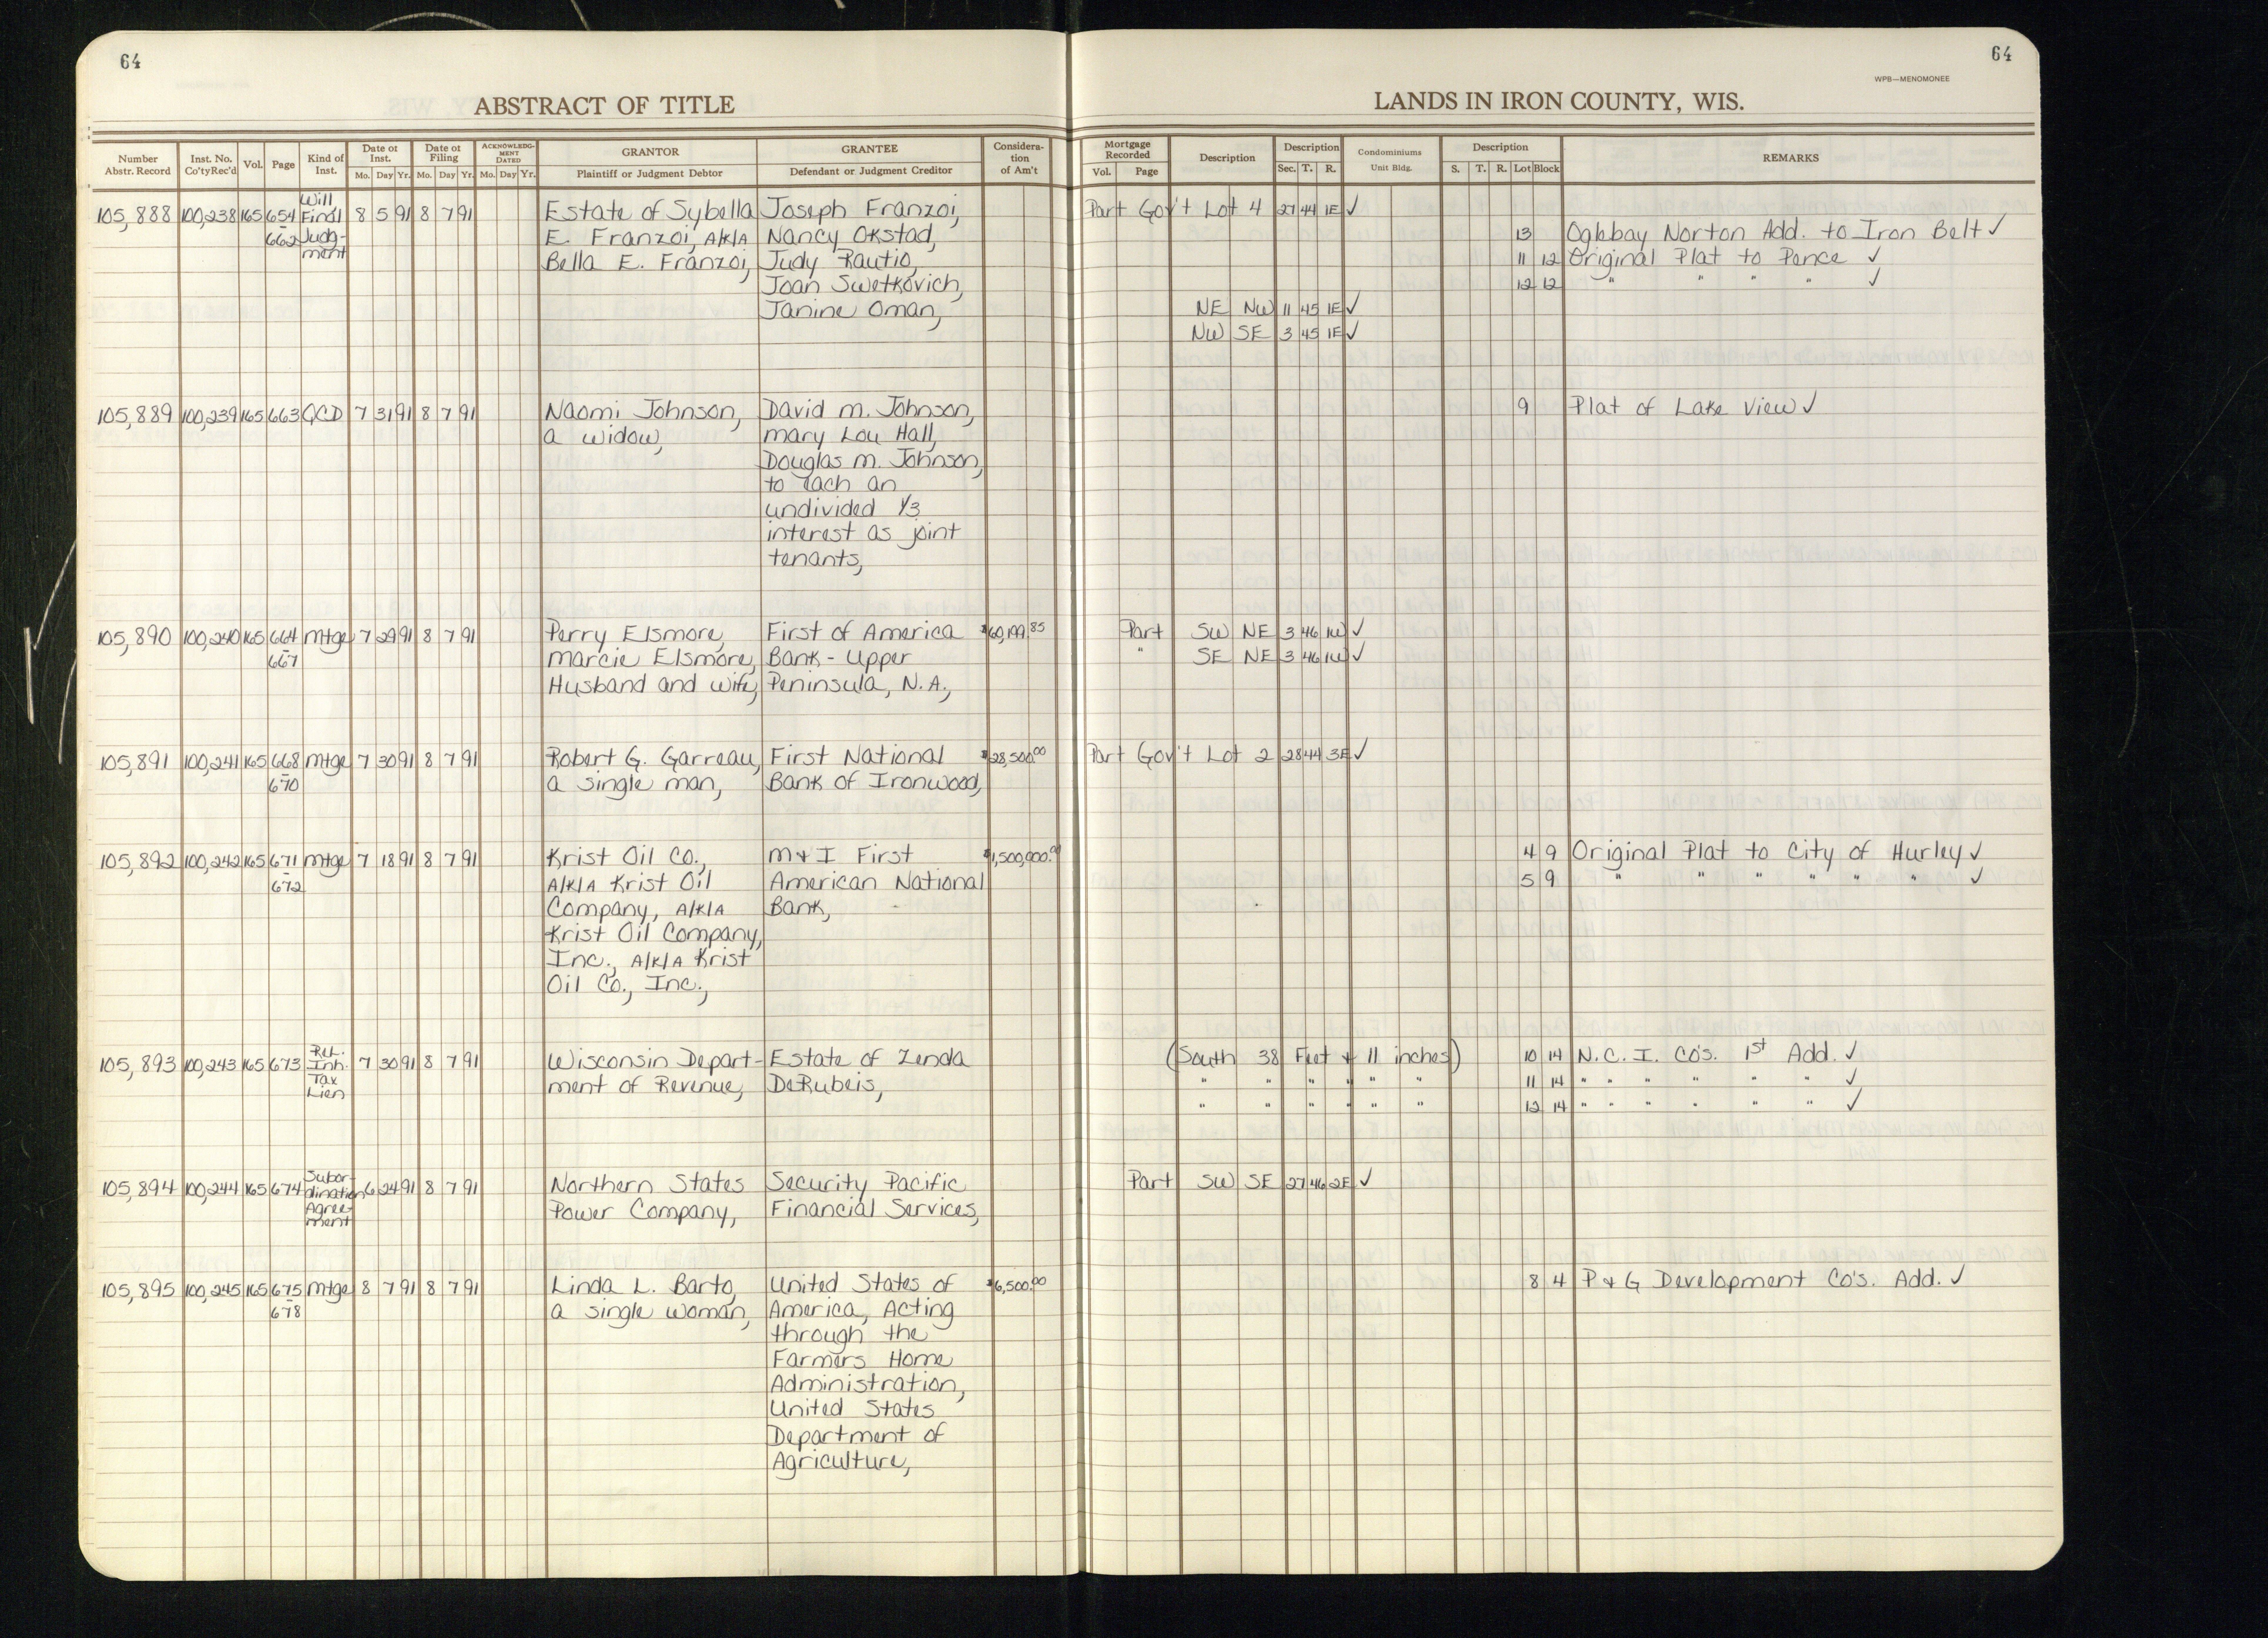 64
64
WPB—MENOMONEE
ABSTRACT OF TITLE
LANDS IN IRON COUNTY, WIS.
Number Abstr. Record | Inst. No. Co'tyRec'd | Vol. | Page | Kind of Inst. | Date of Inst. Mo. Day Yr. | Date of Filing Mo. Day Yr. | ACKNOWLEDGMENT DATED Mo. Day Yr. | GRANTOR Plaintiff or Judgment Debtor | GRANTEE Defendant or Judgment Creditor | Consideration of Am't | Mortgage Recorded Vol. Page | Description | Description Sec. T. R. | Condominiums Unit Bldg. | Description S. T. R. Lot Block | REMARKS
105,888 100,238 165 654 Will Final 8 5 91 8 7 91 Estate of Sybella Joseph Franzoi, Part Gov't Lot 4 27 44 1E ✓
- 662 Judg- E. Franzoi, A/K/A Nancy Okstad, 13 Oglebay Norton Add. to Iron Belt ✓
ment Bella E. Franzoi, Judy Rautio, 11 12 Original Plat to Pence ✓
Joan Swetkovich, 12 12 " " " " ✓
Janine Oman, NE NW 11 45 1E ✓
NW SE 3 45 1E ✓
105,889 100,239 165 663 QCD 7 31 91 8 7 91 Naomi Johnson, David M. Johnson, 9 Plat of Lake View ✓
a widow, Mary Lou Hall,
Douglas M. Johnson,
to each an
undivided 1/3
interest as joint
tenants,
105,890 100,240 165 664 Mtge 7 29 91 8 7 91 Perry Elsmore, First of America $60,199.85 Part SW NE 3 46 1W ✓
- 667 Marcie Elsmore, Bank - Upper " SE NE 3 46 1W ✓
Husband and wife, Peninsula, N.A.,
105,891 100,241 165 668 Mtge 7 30 91 8 7 91 Robert G. Garreau, First National $28,500.00 Part Gov't Lot 2 28 44 3E ✓
- 670 a single man, Bank of Ironwood,
105,892 100,242 165 671 Mtge 7 18 91 8 7 91 Krist Oil Co., M & I First $1,500,000.00 4 9 Original Plat to City of Hurley ✓
- 672 A/K/A Krist Oil American National 5 9 " " " " " " ✓
Company, A/K/A Bank,
Krist Oil Company,
Inc., A/K/A Krist
Oil Co., Inc.,
105,893 100,243 165 673 Rel. Inh. 7 30 91 8 7 91 Wisconsin Depart- Estate of Zenda (South 38 Feet & 11 inches) 10 14 N.C.I. Co's. 1st Add. ✓
Tax ment of Revenue, DeRubeis, " " " " " " 11 14 " " " " " " ✓
Lien " " " " " " 12 14 " " " " " " ✓
105,894 100,244 165 674 Subor- dination 6 24 91 8 7 91 Northern States Security Pacific Part SW SE 27 46 2E ✓
Agree- ment Power Company, Financial Services,
105,895 100,245 165 675 Mtge 8 7 91 8 7 91 Linda L. Barto, United States of $6,500.00 8 4 P & G Development Co's. Add. ✓
- 678 a single woman, America, Acting
through the
Farmers Home
Administration,
United States
Department of
Agriculture,